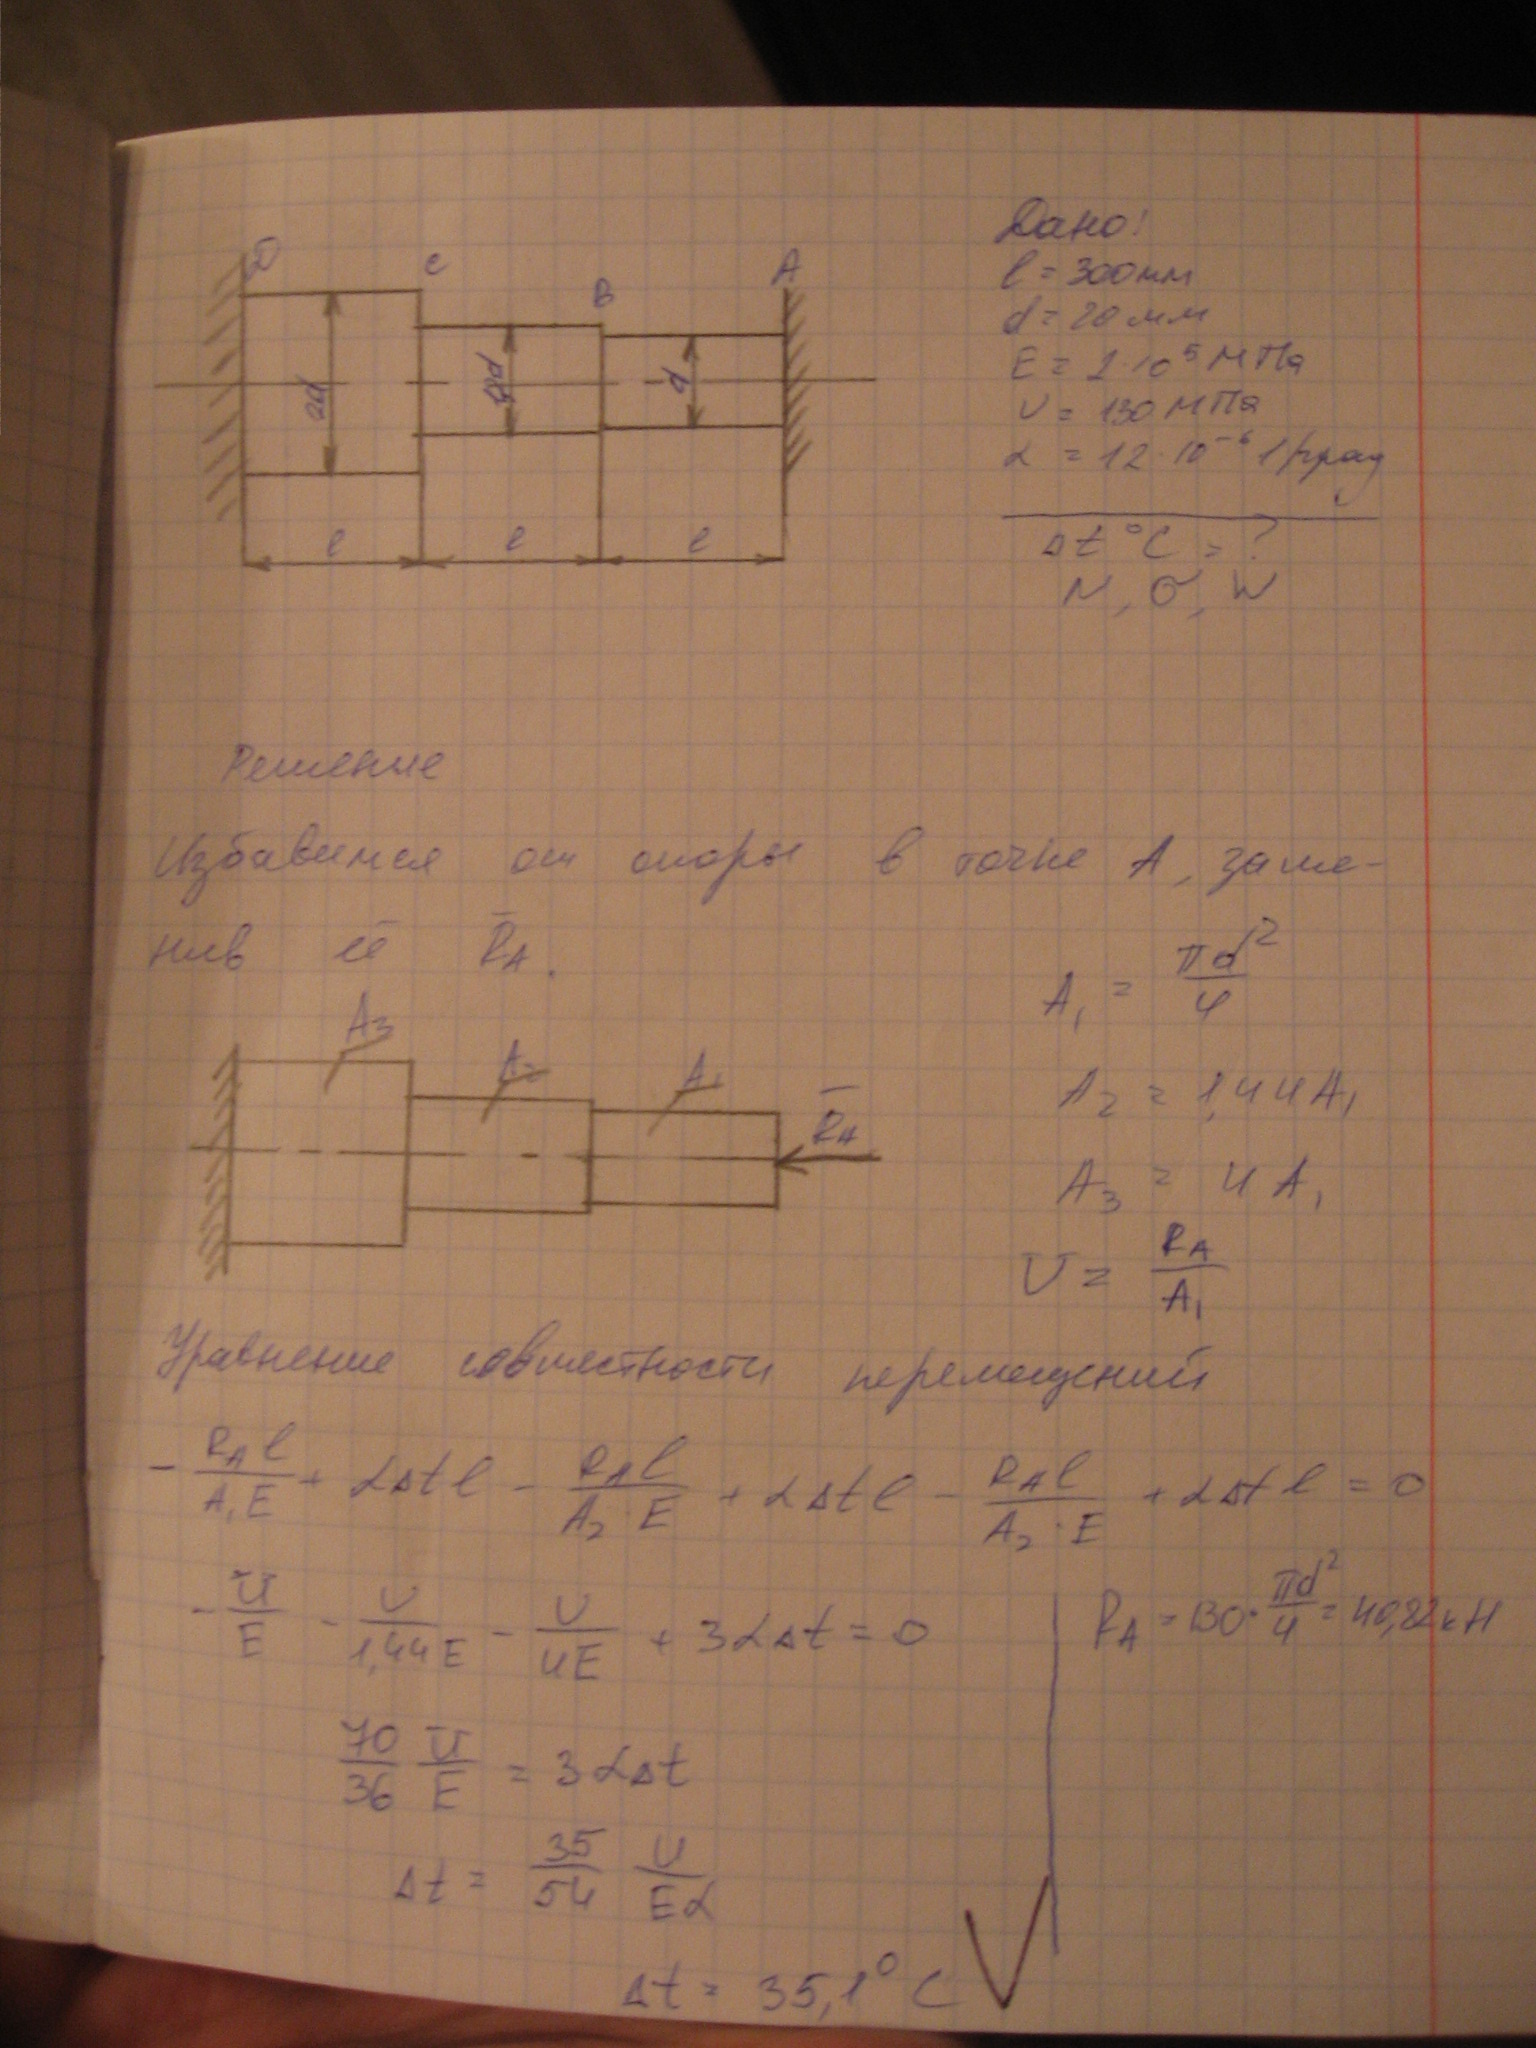 D
C
B
A
2d
d
l
l
l
Дано:
l = 300мм
d = 20 мм
E = 2·10⁵ МПа
σ = 130 МПа
α = 12·10⁻⁶ 1/град
Δt °C = ?
N, σ, W
Решение
Избавимся от опоры в точке A, заме-
нив её R̄_A.
A₁ = πd²/4
A₂ = 1,44A₁
A₃ = 4A₁
σ = R_A/A₁
A₃
A₂
A₁
R̄_A
Уравнение совместности перемещений
- R_A l/A₁E + αΔtl - R_A l/A₂·E + αΔtl - R_A l/A₃·E + αΔtl = 0
- σ/E - σ/1,44E - σ/4E + 3αΔt = 0
R_A = 130·πd²/4 = 40,82кН
70/36 σ/E = 3αΔt
Δt = 35/54 σ/Eα
Δt = 35,1°C